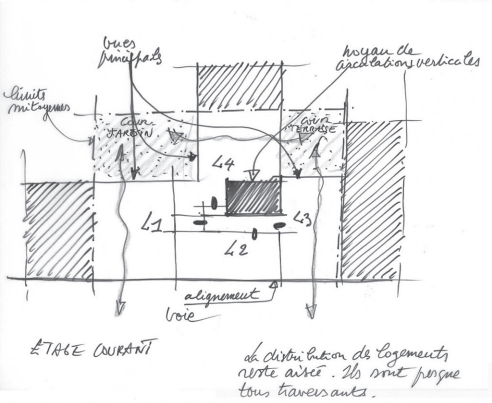 vues
principales
noyau de
circulations verticales
limites
mitoyennes
COUR
JARDIN
COUR
TERRASSE
L4
L1
L3
L2
alignement
voie
ETAGE COURANT
La distribution des logements
reste aisée. Ils sont presque
tous traversants.